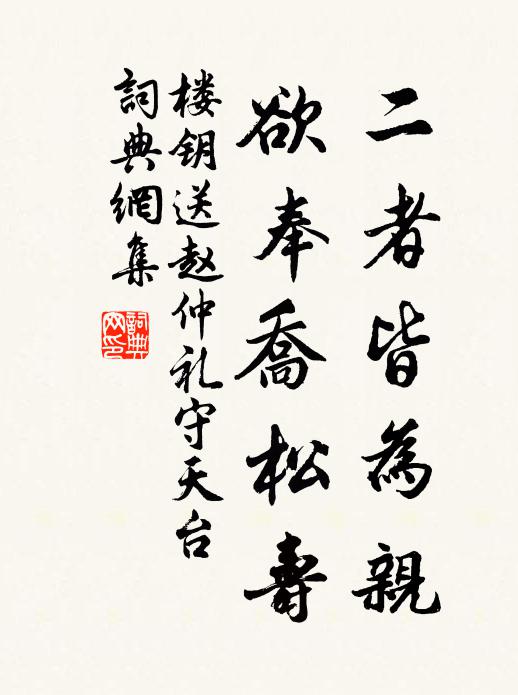 二者皆為親
欲奉喬松壽
楼钥送赵仲礼守天台
詞典網集
詞典网印